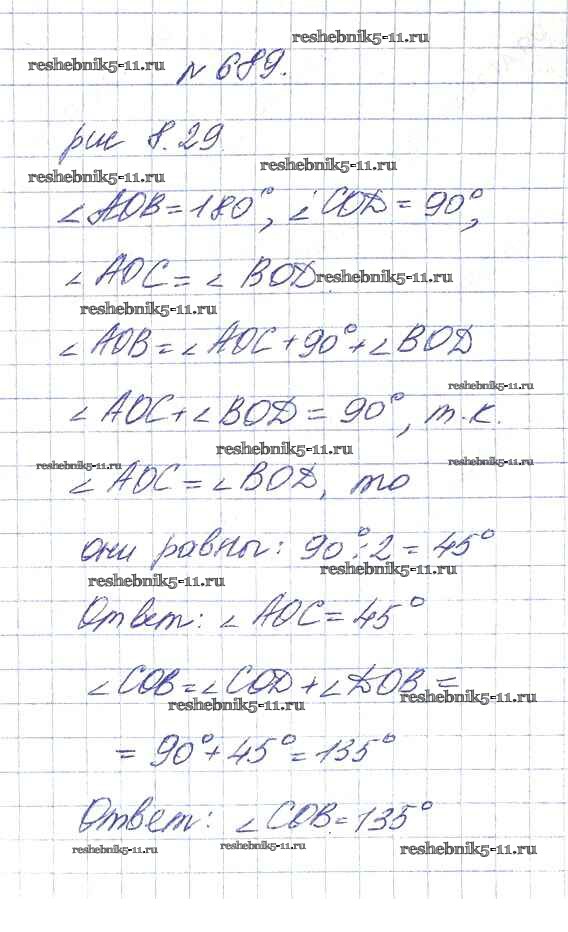 reshebnik5-11.ru
reshebnik5-11.ru
№ 689.
рис 8.29
reshebnik5-11.ru
reshebnik5-11.ru
∠AOB = 180°, ∠COD = 90°,
∠AOC = ∠BOD.
reshebnik5-11.ru
reshebnik5-11.ru
∠AOB = ∠AOC + 90° + ∠BOD
reshebnik5-11.ru
∠AOC + ∠BOD = 90°, т.к.
reshebnik5-11.ru
reshebnik5-11.ru
reshebnik5-11.ru
∠AOC = ∠BOD, то
они равны: 90° : 2 = 45°
reshebnik5-11.ru
reshebnik5-11.ru
Ответ: ∠AOC = 45°
∠COB = ∠COD + ∠DOB =
reshebnik5-11.ru
reshebnik5-11.ru
= 90° + 45° = 135°
Ответ: ∠COB = 135°
reshebnik5-11.ru
reshebnik5-11.ru
reshebnik5-11.ru